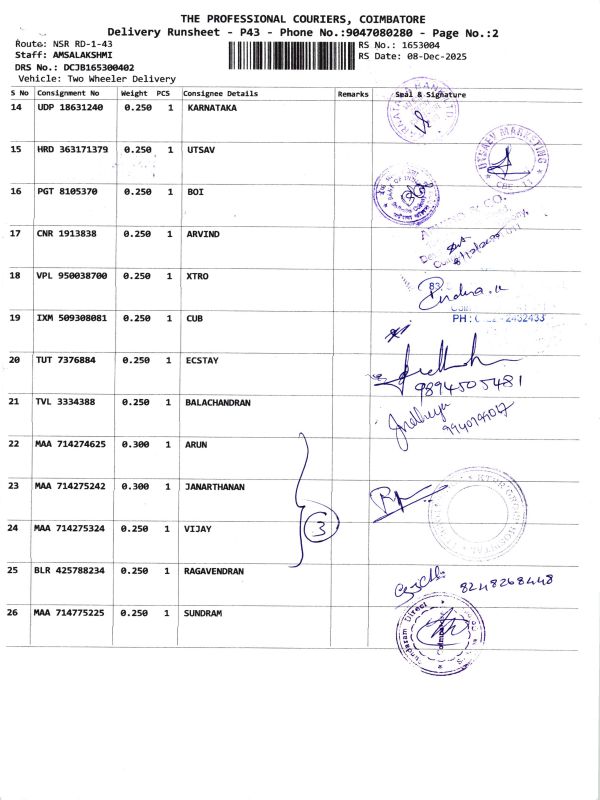 THE PROFESSIONAL COURIERS, COIMBATORE
Delivery Runsheet - P43 - Phone No.:9047080280 - Page No.:2
Route: NSR RD-1-43
RS No.: 1653004
Staff: AMSALAKSHMI
RS Date: 08-Dec-2025
DRS No.: DCJB165300402
Vehicle: Two Wheeler Delivery
S No Consignment No Weight PCS Consignee Details Remarks Seal & Signature
14 UDP 18631240 0.250 1 KARNATAKA
15 HRD 363171379 0.250 1 UTSAV
UTSAV MARKETING
CBE - 11
16 PGT 8105370 0.250 1 BOI
17 CNR 1913838 0.250 1 ARVIND
& CO.
18 VPL 950038700 0.250 1 XTRO
83
19 IXM 509308081 0.250 1 CUB
PH: 2432433
20 TUT 7376884 0.250 1 ECSTAY
9894505481
21 TVL 3334388 0.250 1 BALACHANDRAN
22 MAA 714274625 0.300 1 ARUN
23 MAA 714275242 0.300 1 JANARTHANAN
24 MAA 714275324 0.250 1 VIJAY
3
25 BLR 425788234 0.250 1 RAGAVENDRAN
8248268448
26 MAA 714775225 0.250 1 SUNDRAM
Sundaram Direct